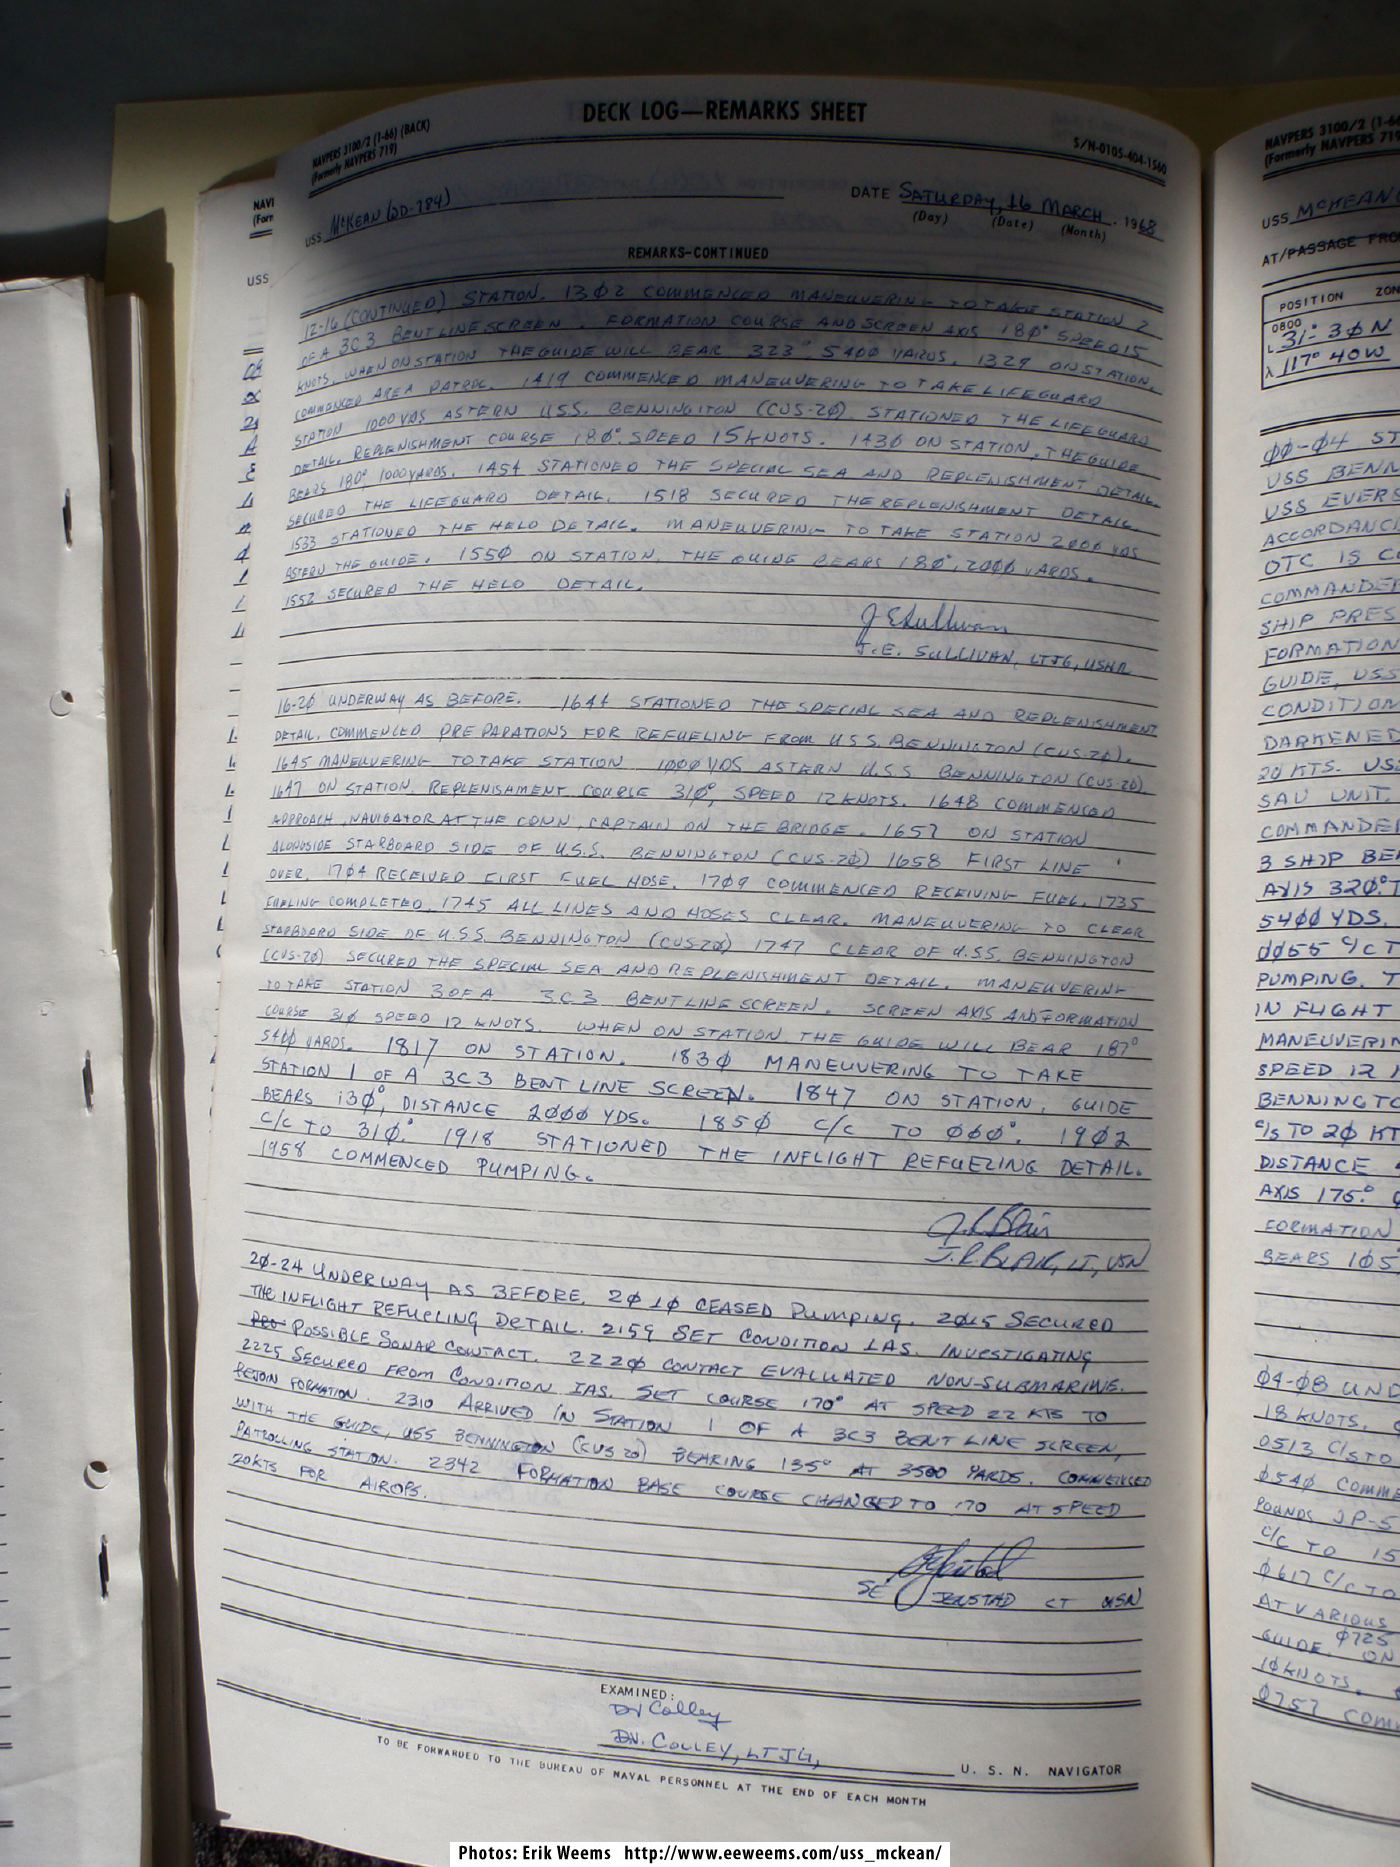 DECK LOG—REMARKS SHEET
NAVPERS 3100/2 (1-66) (BACK)
(Formerly NAVPERS 719)
S/N-0105-404-1560
USS McKEAN (DD-784)
DATE SATURDAY, 16 MARCH 1968
(Day) (Date) (Month)
REMARKS-CONTINUED
12-16 (CONTINUED) STATION. 13Ø2 COMMENCED MANEUVERING TO TAKE STATION 2
OF A 3C3 BENTLINE SCREEN. FORMATION COURSE AND SCREEN AXIS 180° SPEED 15
KNOTS. WHEN ON STATION THE GUIDE WILL BEAR 323° 54ØØ YARDS. 1329 ON STATION.
COMMENCED AREA PATROL. 1419 COMMENCED MANEUVERING TO TAKE LIFEGUARD
STATION 1000 YDS ASTERN U.S.S. BENNINGTON (CVS-2Ø). STATIONED THE LIFEGUARD
DETAIL. REPLENISHMENT COURSE 180°. SPEED 15 KNOTS. 143Ø ON STATION, THE GUIDE
BEARS 180° 1000 YARDS. 1454 STATIONED THE SPECIAL SEA AND REPLENISHMENT DETAIL.
SECURED THE LIFEGUARD DETAIL. 1518 SECURED THE REPLENISHMENT DETAIL.
1533 STATIONED THE HELO DETAIL. MANEUVERING TO TAKE STATION 2000 YDS
ASTERN THE GUIDE. 155Ø ON STATION. THE GUIDE BEARS 180°, 2ØØØ YARDS.
1552 SECURED THE HELO DETAIL.
J E Sullivan
J.E. SULLIVAN, LTJG, USNR
16-2Ø UNDERWAY AS BEFORE. 1644 STATIONED THE SPECIAL SEA AND REPLENISHMENT
DETAIL. COMMENCED PREPARATIONS FOR REFUELING FROM U.S.S. BENNINGTON (CVS-2Ø).
1645 MANEUVERING TO TAKE STATION 1000 YDS ASTERN U.S.S. BENNINGTON (CVS-2Ø)
1647 ON STATION. REPLENISHMENT COURSE 31Ø°, SPEED 12 KNOTS. 1648 COMMENCED
APPROACH, NAVIGATOR AT THE CONN, CAPTAIN ON THE BRIDGE. 1657 ON STATION
ALONGSIDE STARBOARD SIDE OF U.S.S. BENNINGTON (CVS-2Ø) 1658 FIRST LINE
OVER. 17Ø4 RECEIVED FIRST FUEL HOSE. 17Ø9 COMMENCED RECEIVING FUEL. 1735
FUELING COMPLETED. 1745 ALL LINES AND HOSES CLEAR. MANEUVERING TO CLEAR
STARBOARD SIDE OF U.S.S. BENNINGTON (CVS-2Ø) 1747 CLEAR OF U.S.S. BENNINGTON
(CVS-2Ø) SECURED THE SPECIAL SEA AND REPLENISHMENT DETAIL. MANEUVERING
TO TAKE STATION 3 OF A 3C3 BENTLINE SCREEN. SCREEN AXIS AND FORMATION
COURSE 31Ø SPEED 12 KNOTS. WHEN ON STATION THE GUIDE WILL BEAR 187°
54ØØ YARDS. 1817 ON STATION. 183Ø MANEUVERING TO TAKE
STATION 1 OF A 3C3 BENT LINE SCREEN. 1847 ON STATION, GUIDE
BEARS 130°, DISTANCE 2ØØØ YDS. 185Ø C/C TO ØØØ°. 19Ø2
C/C TO 310°. 1918 STATIONED THE INFLIGHT REFUELING DETAIL.
1958 COMMENCED PUMPING.
J.R. Blair
J.R. BLAIR, LT, USN
2Ø-24 UNDERWAY AS BEFORE. 2Ø1Ø CEASED PUMPING. 2Ø15 SECURED
THE INFLIGHT REFUELING DETAIL. 2159 SET CONDITION 1AS. INVESTIGATING
POSSIBLE SONAR CONTACT. 222Ø CONTACT EVALUATED NON-SUBMARINE.
2225 SECURED FROM CONDITION IAS. SET COURSE 170° AT SPEED 22 KTS TO
REJOIN FORMATION. 2310 ARRIVED IN STATION 1 OF A 3C3 BENT LINE SCREEN,
WITH THE GUIDE, USS BENNINGTON (CVS 20) BEARING 135° AT 3500 YARDS. COMMENCED
PATROLLING STATION. 2342 FORMATION BASE COURSE CHANGED TO 170 AT SPEED
20KTS FOR AIROPS.
SE JENSTAD LT USN
EXAMINED:
DN Colley
D.N. COLLEY, LTJG,
U. S. N. NAVIGATOR
TO BE FORWARDED TO THE BUREAU OF NAVAL PERSONNEL AT THE END OF EACH MONTH
NAVPERS 3100/2 (1-66
(Formerly NAVPERS 719
USS McKEAN
AT/PASSAGE FRO
POSITION ZON
0800
L 31° 3Ø N
λ 117° 40 W
ØØ-Ø4 ST
USS BENN
USS EVERS
ACCORDANC
OTC IS C
COMMANDER
SHIP PRES
FORMATION
GUIDE, USS
CONDITION
DARKENED
2Ø KTS. US
SAU UNIT.
COMMANDER
3 SHIP BE
AXIS 320°T
54ØØ YDS.
ØØ55 C/C T
PUMPING. T
IN FLIGHT
MANEUVERIN
SPEED 12 K
BENNINGTO
C/S TO 2Ø KT
DISTANCE
AXIS 175°
FORMATION
BEARS 1Ø5
Ø4-Ø8 UND
18 KNOTS.
0513 C/S TO
Ø54Ø COMME
POUNDS JP-5
C/C TO 15
Ø617 C/C TO
AT VARIOUS
Ø725
GUIDE. ON
1ØKNOTS.
Ø757 COMM
NAVI
(Forr
USS
Photos: Erik Weems http://www.eeweems.com/uss_mckean/